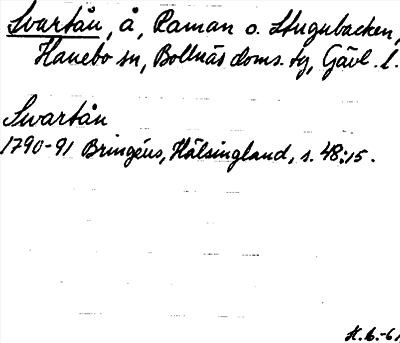 Svartån, å, Raman o. Stugubacken,
Hanebo sn, Bollnäs doms. tg, Gävl. l.
Swartån
1790-91 Bringéus, Hälsingland, s. 48:15.
H.G.-61